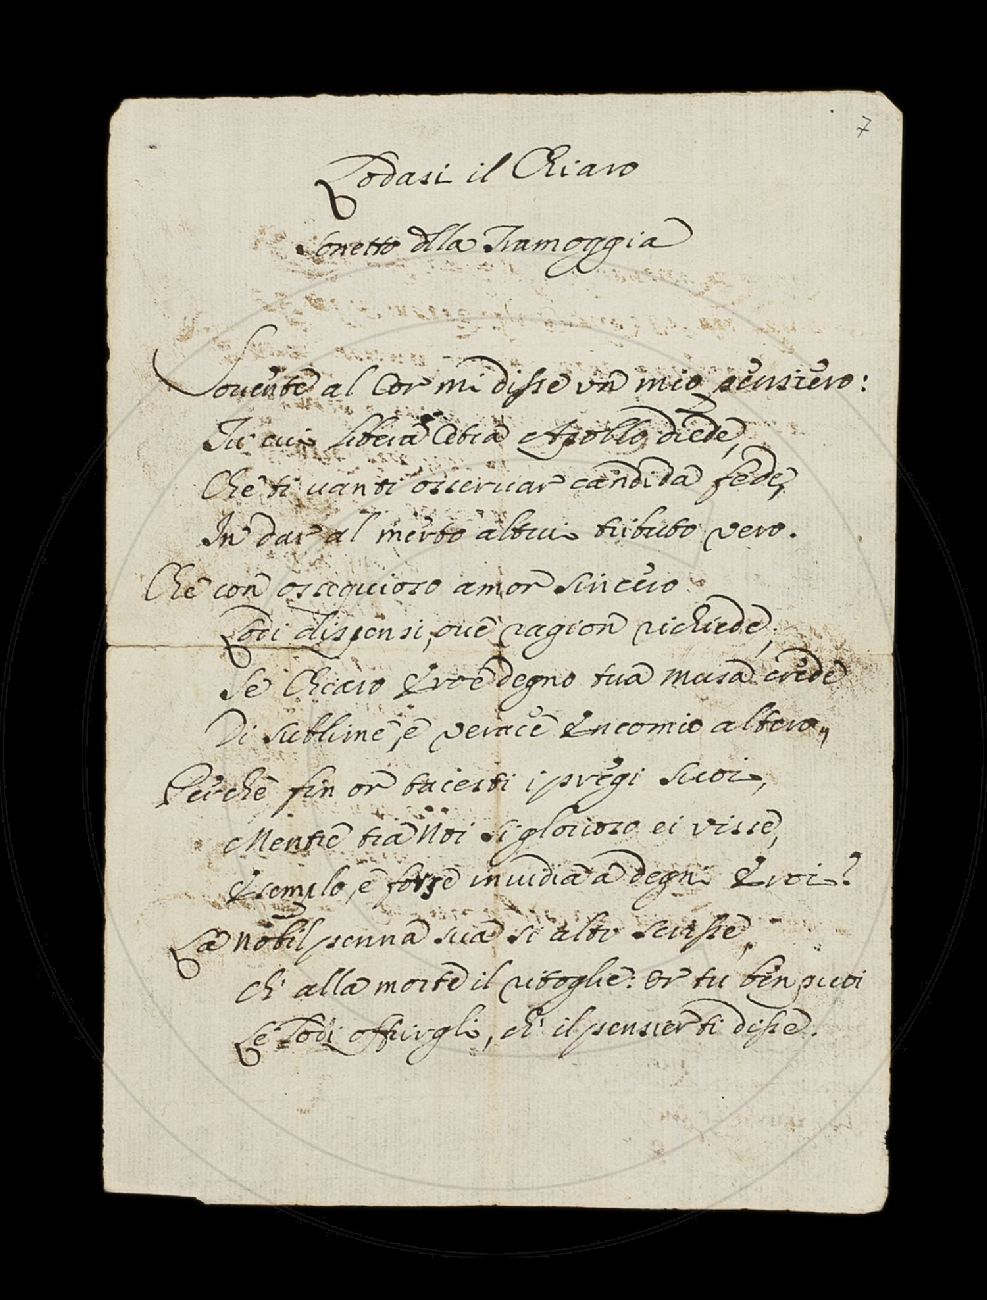 7
Lodasi il Chiaro
Sonetto dlla Tramoggia
Sovente al Cor mi disse vn mio pensiero:
Tu cui libera Cetra Apollo diede,
Che ti vanti osservar candida fede,
In dar al merto altrui tributo vero.
Che con ossequioso amor sincero
Lodi dispensi, oue ragion richiede,
Se Chiaro Eroe degno tua musa crede
Di sublime, e verace Encomio altero,
Perchè fin or tacesti i pregi suoi,
Mentre tra Noi si glorioso ei visse,
Esemplo, e forse invidia a degni Eroi?
La nobil penna sua si alto scrisse,
ch' alla morte il ritoglie: or tu ben puoi
Le lodi offrirgli, ch' il pensier ti disse.